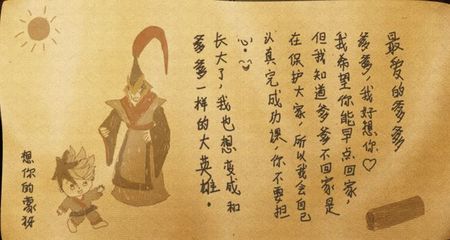 最爱的爹爹
爹爹，我好想你♡
我希望你能早点回家，
但我知道爹爹不回家是
在保护大家，所以我会自己
认真完成功课，你不要担
心。
长大了，我也想变成和
爹爹一样的大英雄。
想你的霖轩